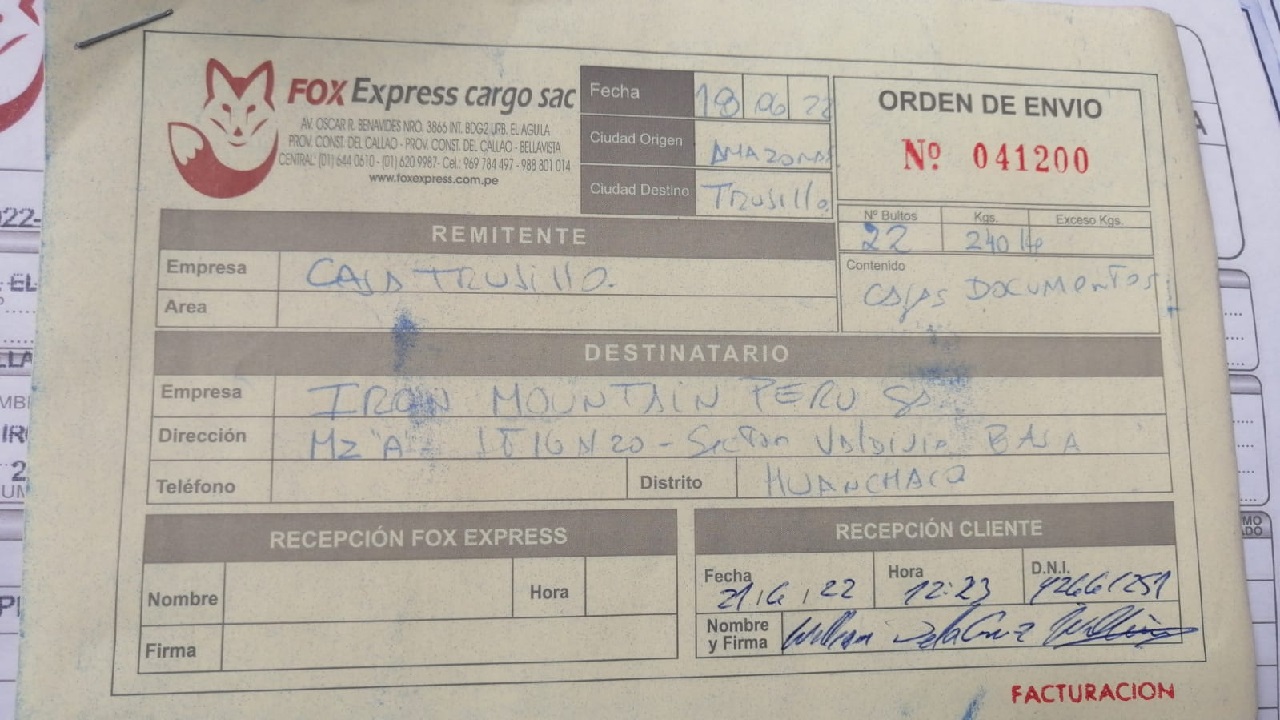 FOX Express cargo sac
AV. OSCAR R. BENAVIDES NRO. 3865 INT. BDG2 URB. EL AGUILA
PROV. CONST. DEL CALLAO - PROV. CONST. DEL CALLAO - BELLAVISTA
CENTRAL: (01) 644 0610 - (01) 620 9987 - Cel.: 969 784 497 - 988 301 014
www.foxexpress.com.pe
Fecha 18 06 22
Ciudad Origen AMAZONAS
Ciudad Destino TRUJILLO
ORDEN DE ENVIO
Nº 041200
Nº Bultos Kgs. Exceso Kgs.
22 240
Contenido
CAJAS DOCUMENTOS
REMITENTE
Empresa CAJA TRUJILLO.
Area
DESTINATARIO
Empresa IRON MOUNTAIN PERU SA
Dirección MZ "A" - Sector Valdivia BAJA
Teléfono Distrito HUANCHACO
RECEPCIÓN FOX EXPRESS
Nombre Hora
Firma
RECEPCIÓN CLIENTE
Fecha 21/6/22 Hora 12:23 D.N.I. 42661251
Nombre y Firma William De la Cruz
FACTURACION